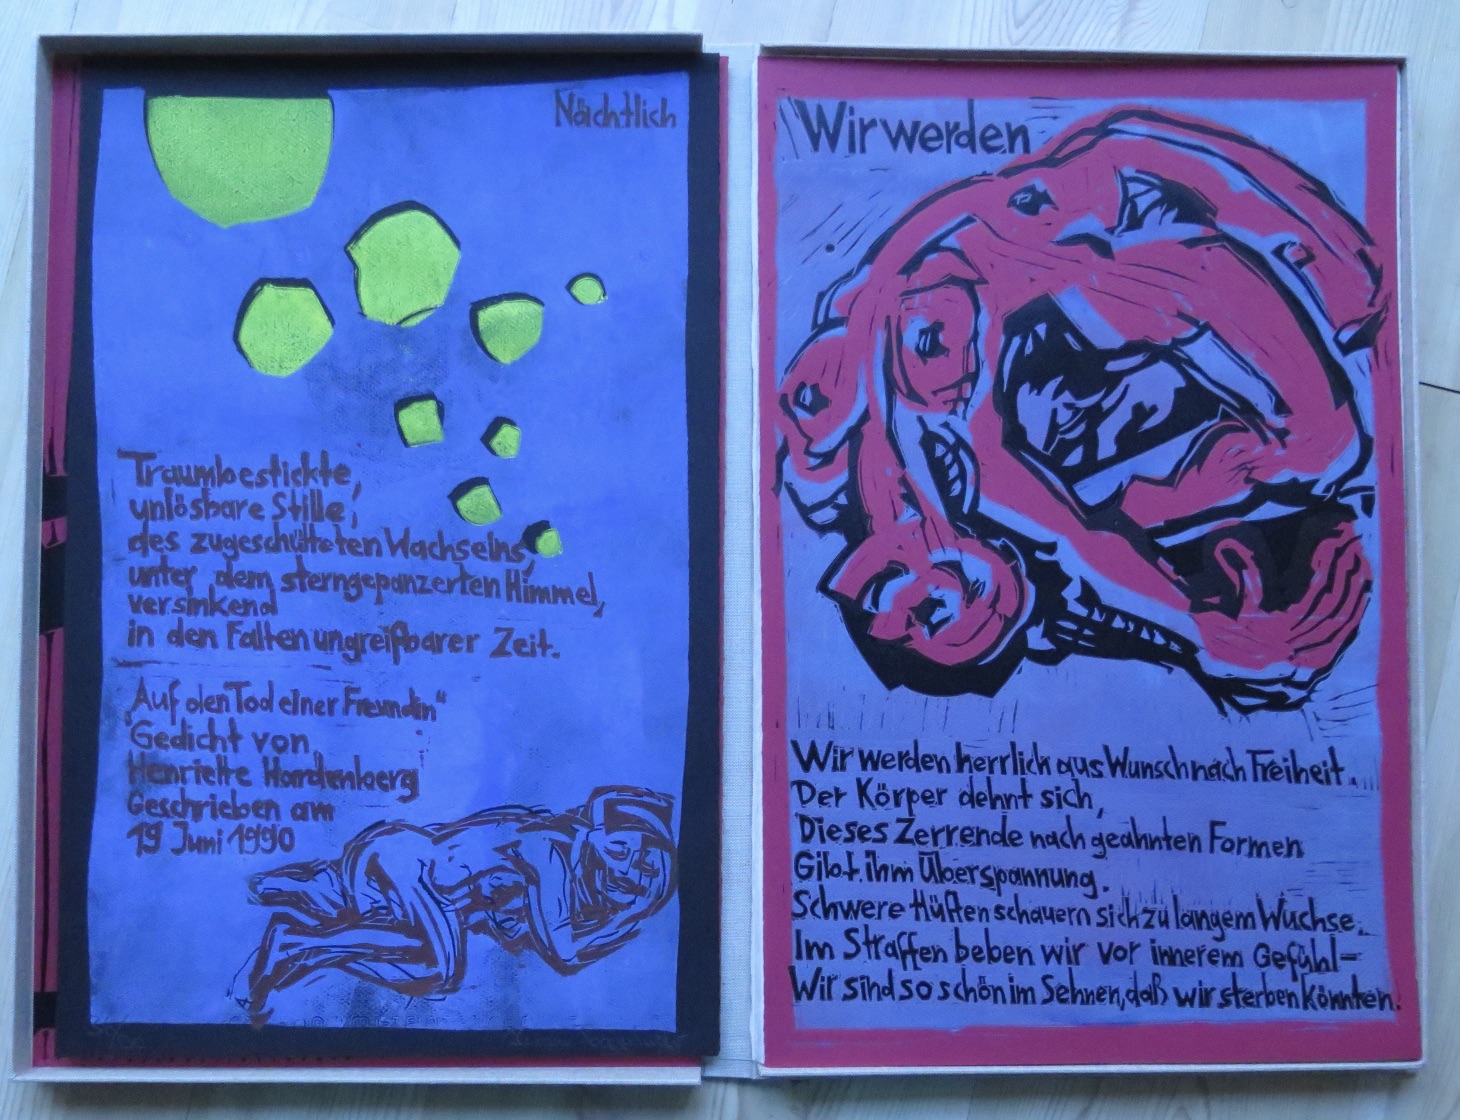 Nächtlich
Traumbestickte,
unlösbare Stille,
des zugeschütteten Wachselns,
unter dem sterngepanzerten Himmel,
versinkend
in den Falten ungreifbarer Zeit.
„Auf den Tod einer Freundin“
Gedicht von
Henriette Hardenberg
Geschrieben am
19 Juni 1990
Wir werden
Wir werden herrlich aus Wunsch nach Freiheit.
Der Körper dehnt sich,
Dieses Zerrende nach geahnten Formen
Gibt ihm Überspannung.
Schwere Hüften schauern sich zu langem Wuchse.
Im Straffen beben wir vor innerem Gefühl-
Wir sind so schön im Sehnen, daß wir sterben könnten.